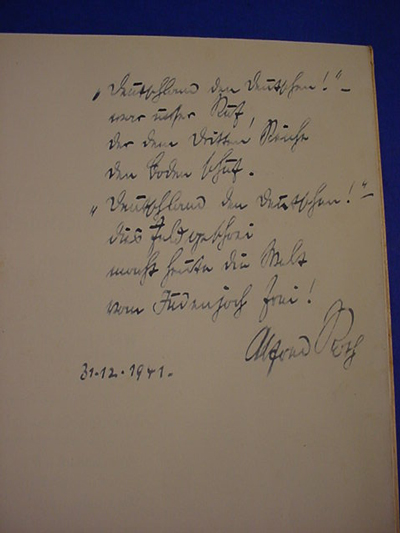 „Deutschland den Deutschen!“ –
war unser Ruf,
der dem Dritten Reiche
den Boden schuf.
„Deutschland den Deutschen!“ –
dies Feldgeschrei
macht heute die Welt
vom Judenjoch frei!
Alfred Roth
31.12.1941.